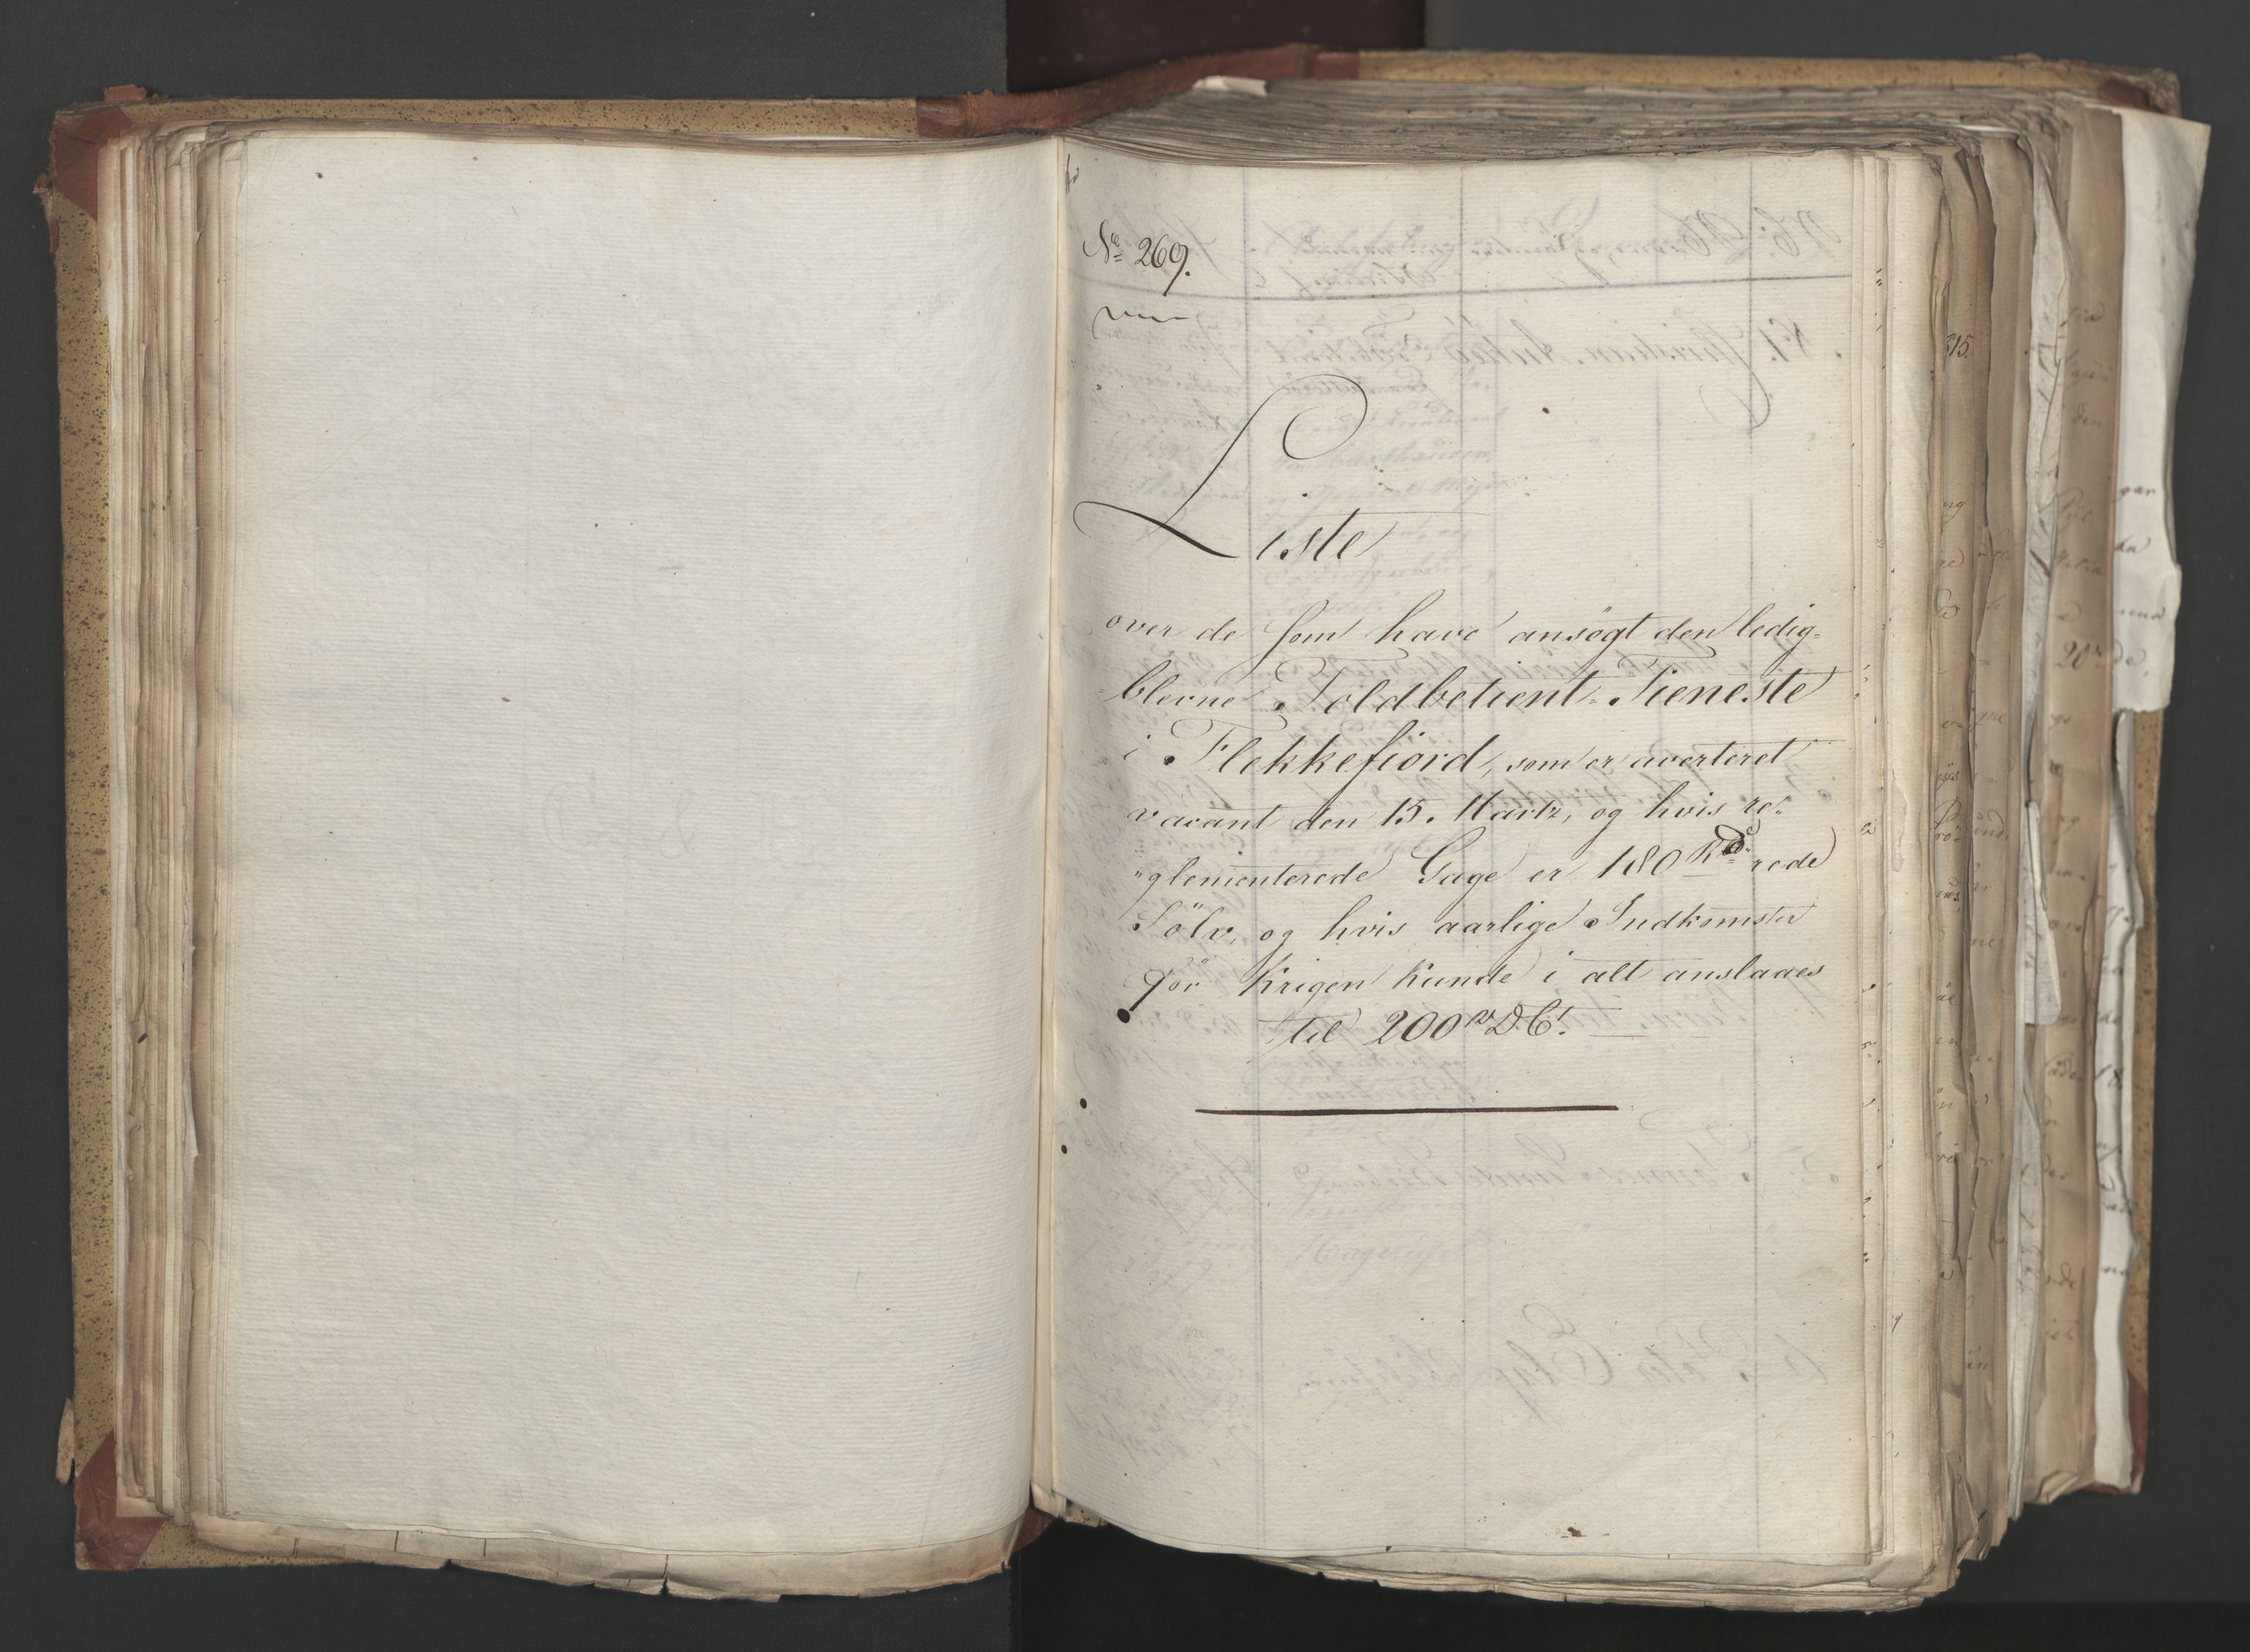 No 269.
Liste
over de som have ansögt den ledig-
blevne Toldbetient-Tieneste
i Flekkefiord, som er averteret
vacant den 15. Martz, og hvis re-
"glementerede Gage er 180 Rd rede
Sölv, og hvis aarlige Indkomster
för Krigen kunde i alt anslaaes
til 200 rd D. Ct.
315.